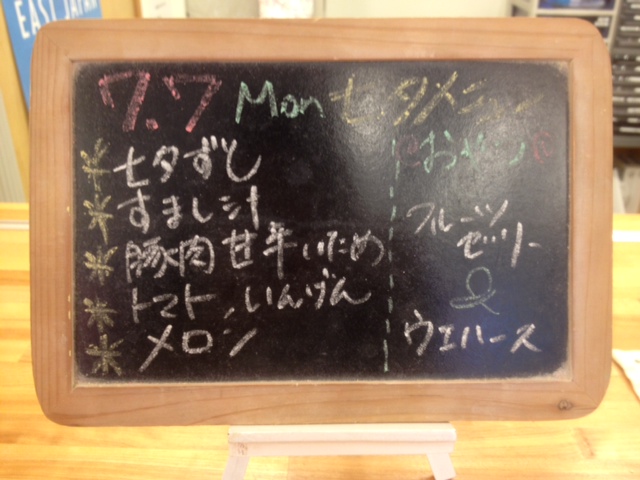 EAST JAPAN
7.7 Mon 七夕メニュー
七夕ずし
すまし汁
豚肉甘辛いため
トマト、いんげん
メロン
おやつ
フルーツ
ゼリー
&
ウエハース